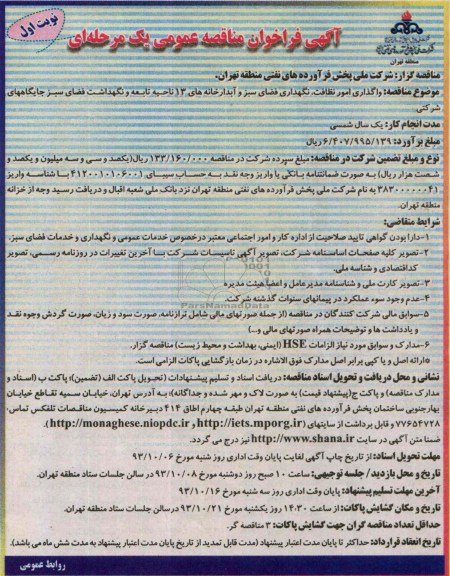 نوبت اول
آگهی فراخوان مناقصه عمومی یک مرحله‌ای
منطقه تهران
مناقصه گزار: شرکت ملی پخش فرآورده های نفتی منطقه تهران.
موضوع مناقصه: واگذاری امور نظافت، نگهداری فضای سبز و آبدارخانه های ۱۳ ناحیه تابعه و نگهداشت فضای سبز جایگاههای
شرکتی.
مدت انجام کار: یک سال شمسی
مبلغ برآورد: ۶/۴۰۷/۹۹۵/۱۳۹ ریال
نوع و مبلغ تضمین شرکت در مناقصه: مبلغ سپرده شرکت در مناقصه ۱۳۳/۱۶۰/۰۰۰ ریال(یکصد و سی و سه میلیون و یکصد و
شصت هزار ریال) به صورت ضمانتنامه بانکی یا واریز وجه نقد به حساب سیبای (۴۱۲۰۰۱۰۱۰۶۰۰۱) با شناسه واریز
۳۸۳۰۰۰۰۰۰۴۱ به نام شرکت ملی پخش فرآورده های نفتی منطقه تهران نزد بانک ملی شعبه اقبال و دریافت رسید وجه از خزانه
منطقه تهران.
شرایط متقاضی:
۱-دارا بودن گواهی تایید صلاحیت از اداره کار و امور اجتماعی معتبر درخصوص خدمات عمومی و نگهداری و خدمات فضای سبز.
۲-تصویر کلیه صفحات اساسنامه شرکت، تصویر آگهی تاسیسات شرکت با آخرین تغییرات در روزنامه رسمی، تصویر
کداقتصادی و شناسه ملی.
۳-تصویر کارت ملی و شناسنامه مدیرعامل و اعضا هیئت مدیره
۴-عدم وجود سوء عملکرد در پیمانهای سنوات گذشته شرکت.
۵-سوابق مالی شرکت کنندگان در مناقصه (از جمله صورتهای مالی شامل ترازنامه، صورت سود و زیان، صورت گردش وجوه نقد
و یادداشت ها و توضیحات همراه صورتهای مالی و...)
۶-مدارک و سوابق مورد نیاز الزامات HSE (ایمنی، بهداشت و محیط زیست) مناقصه گزار.
*ارائه اصل و یا کپی برابر اصل مدارک فوق الاشاره در زمان بازگشایی پاکات الزامی است.
نشانی و محل دریافت و تحویل اسناد مناقصه: دریافت اسناد و تسلیم پیشنهادات (تحویل پاکت الف (تضمین)؛ پاکت ب (اسناد و
مدارک مناقصه) و پاکت ج (پیشنهاد قیمت) به صورت لاک و مهر شده و جداگانه)؛ به آدرس تهران، خیابان سمیه تقاطع خیابان
بهار جنوبی ساختمان پخش فرآورده های نفتی منطقه تهران طبقه چهارم اطاق ۴۱۴ دبیرخانه کمیسیون مناقصات تلفکس تماس:
۷۷۶۵۴۷۲۸ و قابل برداشت از سایتهای (http://iets.mporg.ir و http://monaghese.niopdc.ir).
ضمنا متن آگهی در سایت http://www.shana.ir نیز درج می گردد.
مهلت تحویل اسناد: از تاریخ چاپ آگهی لغایت پایان وقت اداری روز شنبه مورخ ۹۳/۱۰/۰۶
تاریخ و محل بازدید / جلسه توجیهی: ساعت ۱۰ صبح روز دوشنبه مورخ ۹۳/۱۰/۰۸ در سالن جلسات ستاد منطقه تهران.
آخرین مهلت تسلیم پیشنهاد: پایان وقت اداری روز سه شنبه مورخ ۹۳/۱۰/۱۶
تاریخ و مکان گشایش پاکات: از ساعت ۱۴:۳۰ روز یکشنبه مورخ ۹۳/۱۰/۲۱ در سالن جلسات ستاد منطقه تهران.
حداقل تعداد مناقصه گران جهت گشایش پاکات: ۳ مناقصه گر.
تاریخ انعقاد قرارداد: حداکثر تا پایان مدت اعتبار پیشنهاد (مدت قابل تمدید از تاریخ پایان مدت اعتبار پیشنهاد به مدت شش ماه می باشد).
روابط عمومی